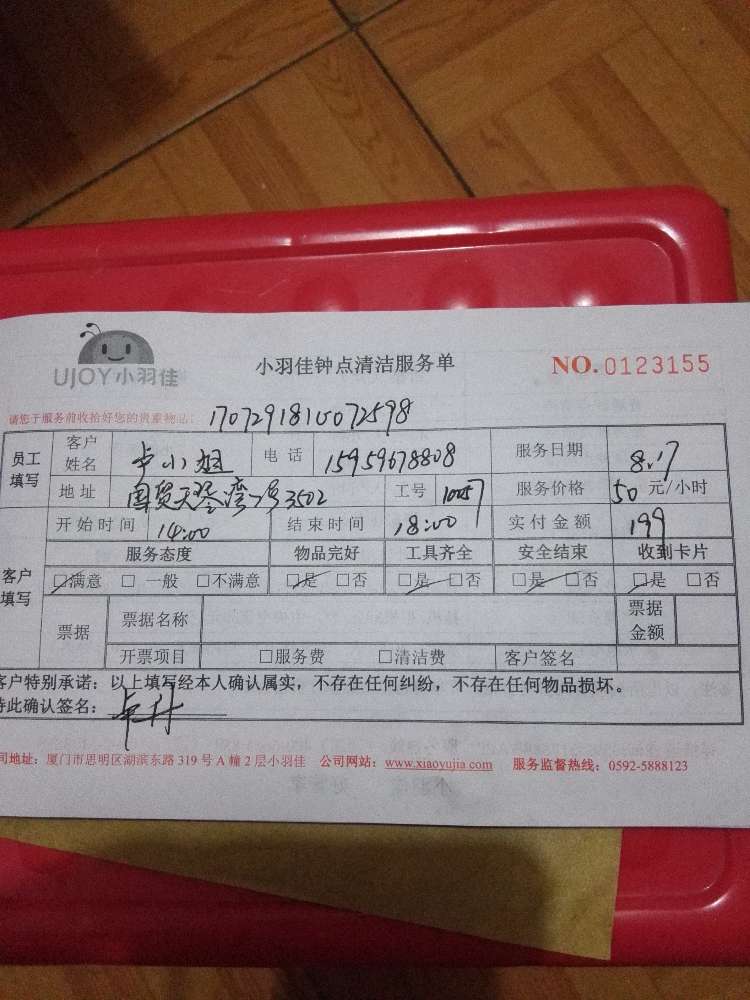 UJOY小羽佳
小羽佳钟点清洁服务单
NO.0123155
请您于服务前收拾好您的贵重物品:
员工填写 客户姓名 卢小姐 电话 15959678808 服务日期 8.17
地址 国贸天琴湾 号3502 工号 服务价格 50 元/小时
开始时间 14:00 结束时间 18:00 实付金额 199
客户填写 服务态度 物品完好 工具齐全 安全结束 收到卡片
□满意 □一般 □不满意 □是 □否 □是 □否 □是 □否 □是 □否
票据 票据名称 票据金额
开票项目 □服务费 □清洁费 客户签名
客户特别承诺：以上填写经本人确认属实，不存在任何纠纷，不存在任何物品损坏。
特此确认签名：
司地址：厦门市思明区湖滨东路 319 号 A 幢 2 层小羽佳 公司网站：www.xiaoyujia.com 服务监督热线：0592-5888123